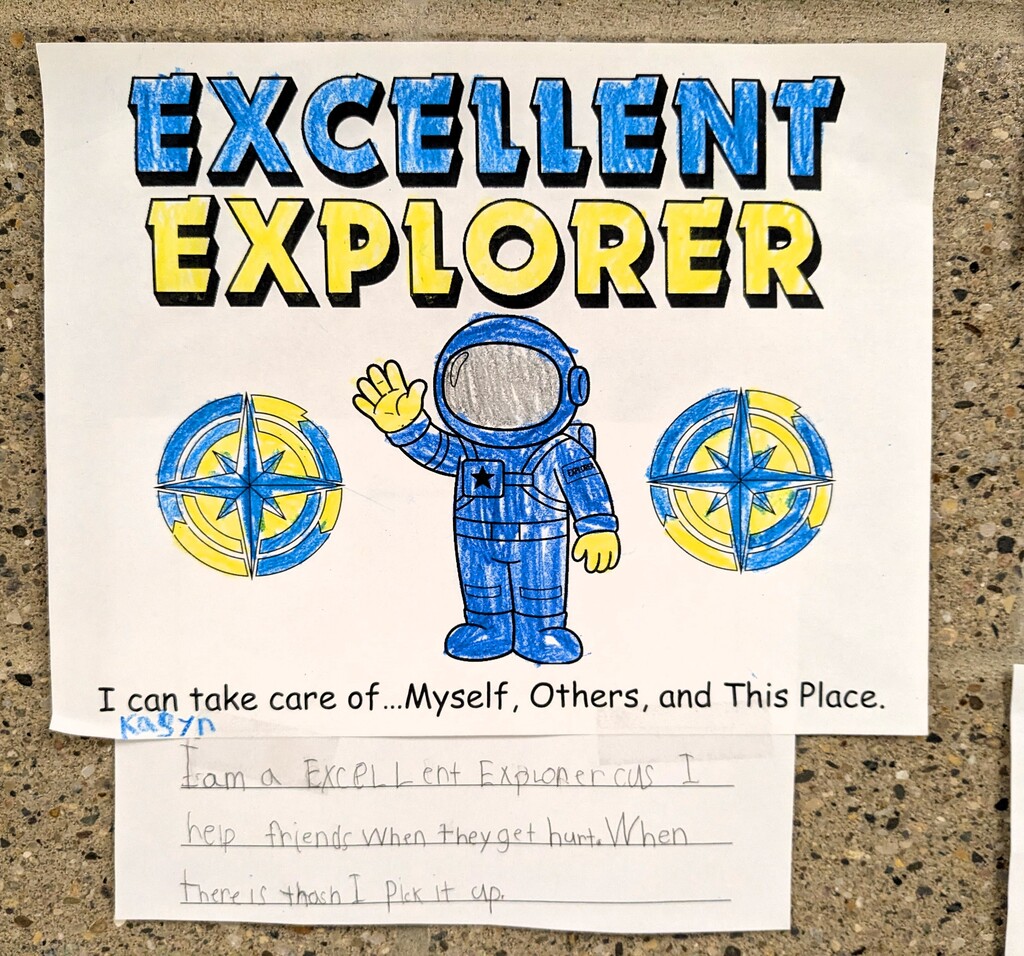 EXCELLENT
EXPLORER
EXPLORER
I can take care of...Myself, Others, and This Place.
Kasyn
I am a EXCELLent Explorer cus I
help friends when they get hurt. When
there is thash I pick it up.